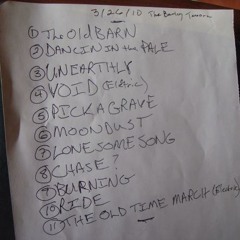 3/26/10 The Barley Tavern
① The Old BARN
② DANCIN IN the PALE
③ UNEARTHLY
④ VOID (Electric)
⑤ PICK A GRAVE
⑥ MOONDUST
⑦ LONESOME SONG
⑧ CHASE?
⑨ BURNING
⑩ RIDE
⑪ THE OLD TIME MARCH (Electric)